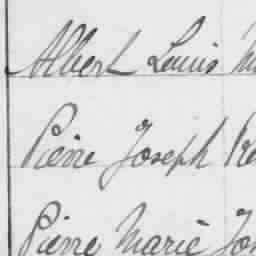 Albert Louis
Pierre Joseph
Pierre Marie